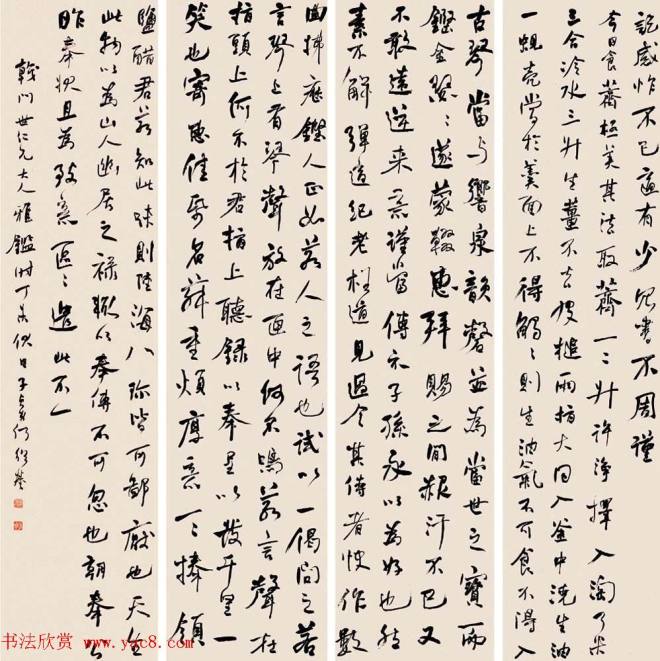 訖感怍不已適有少冗書不周謹
今日食薺極美其法取薺一二升許淨擇入淘了米
三合冷水三升生薑不去皮搥兩指大同入釜中澆生油
一蜆壳當於羹面上不得觸觸則生油氣不可食不得入
古琴當与響泉韻磬並為當世之寶而
鏗金瑟瑟遂蒙輟惠拜賜之間赧汗不已又
不敢遠逆来意謹當傳示子孫永以為好也然
素不解彈適紀老枉道見過令其侍者快作數
曲拂歷鏗然正如若人之語也試以一偈問之若
言琴上有琴聲放在匣中何不鳴若言聲在
指頭上何不於君指上聽錄以奉呈以發千里一
笑也寄惠佳紙名荈重煩厚意一一捧領
鹽醋君若知此味則陸海八珍皆可鄙厭也天生
此物以為山人幽居之祿輙以奉傳不可忽也朝奉公
昨奉狀且為致意區區遣此不一
世仁兄大人雅鑑時丁未伏日子貞何紹基
书法欣赏 www.yac8.com